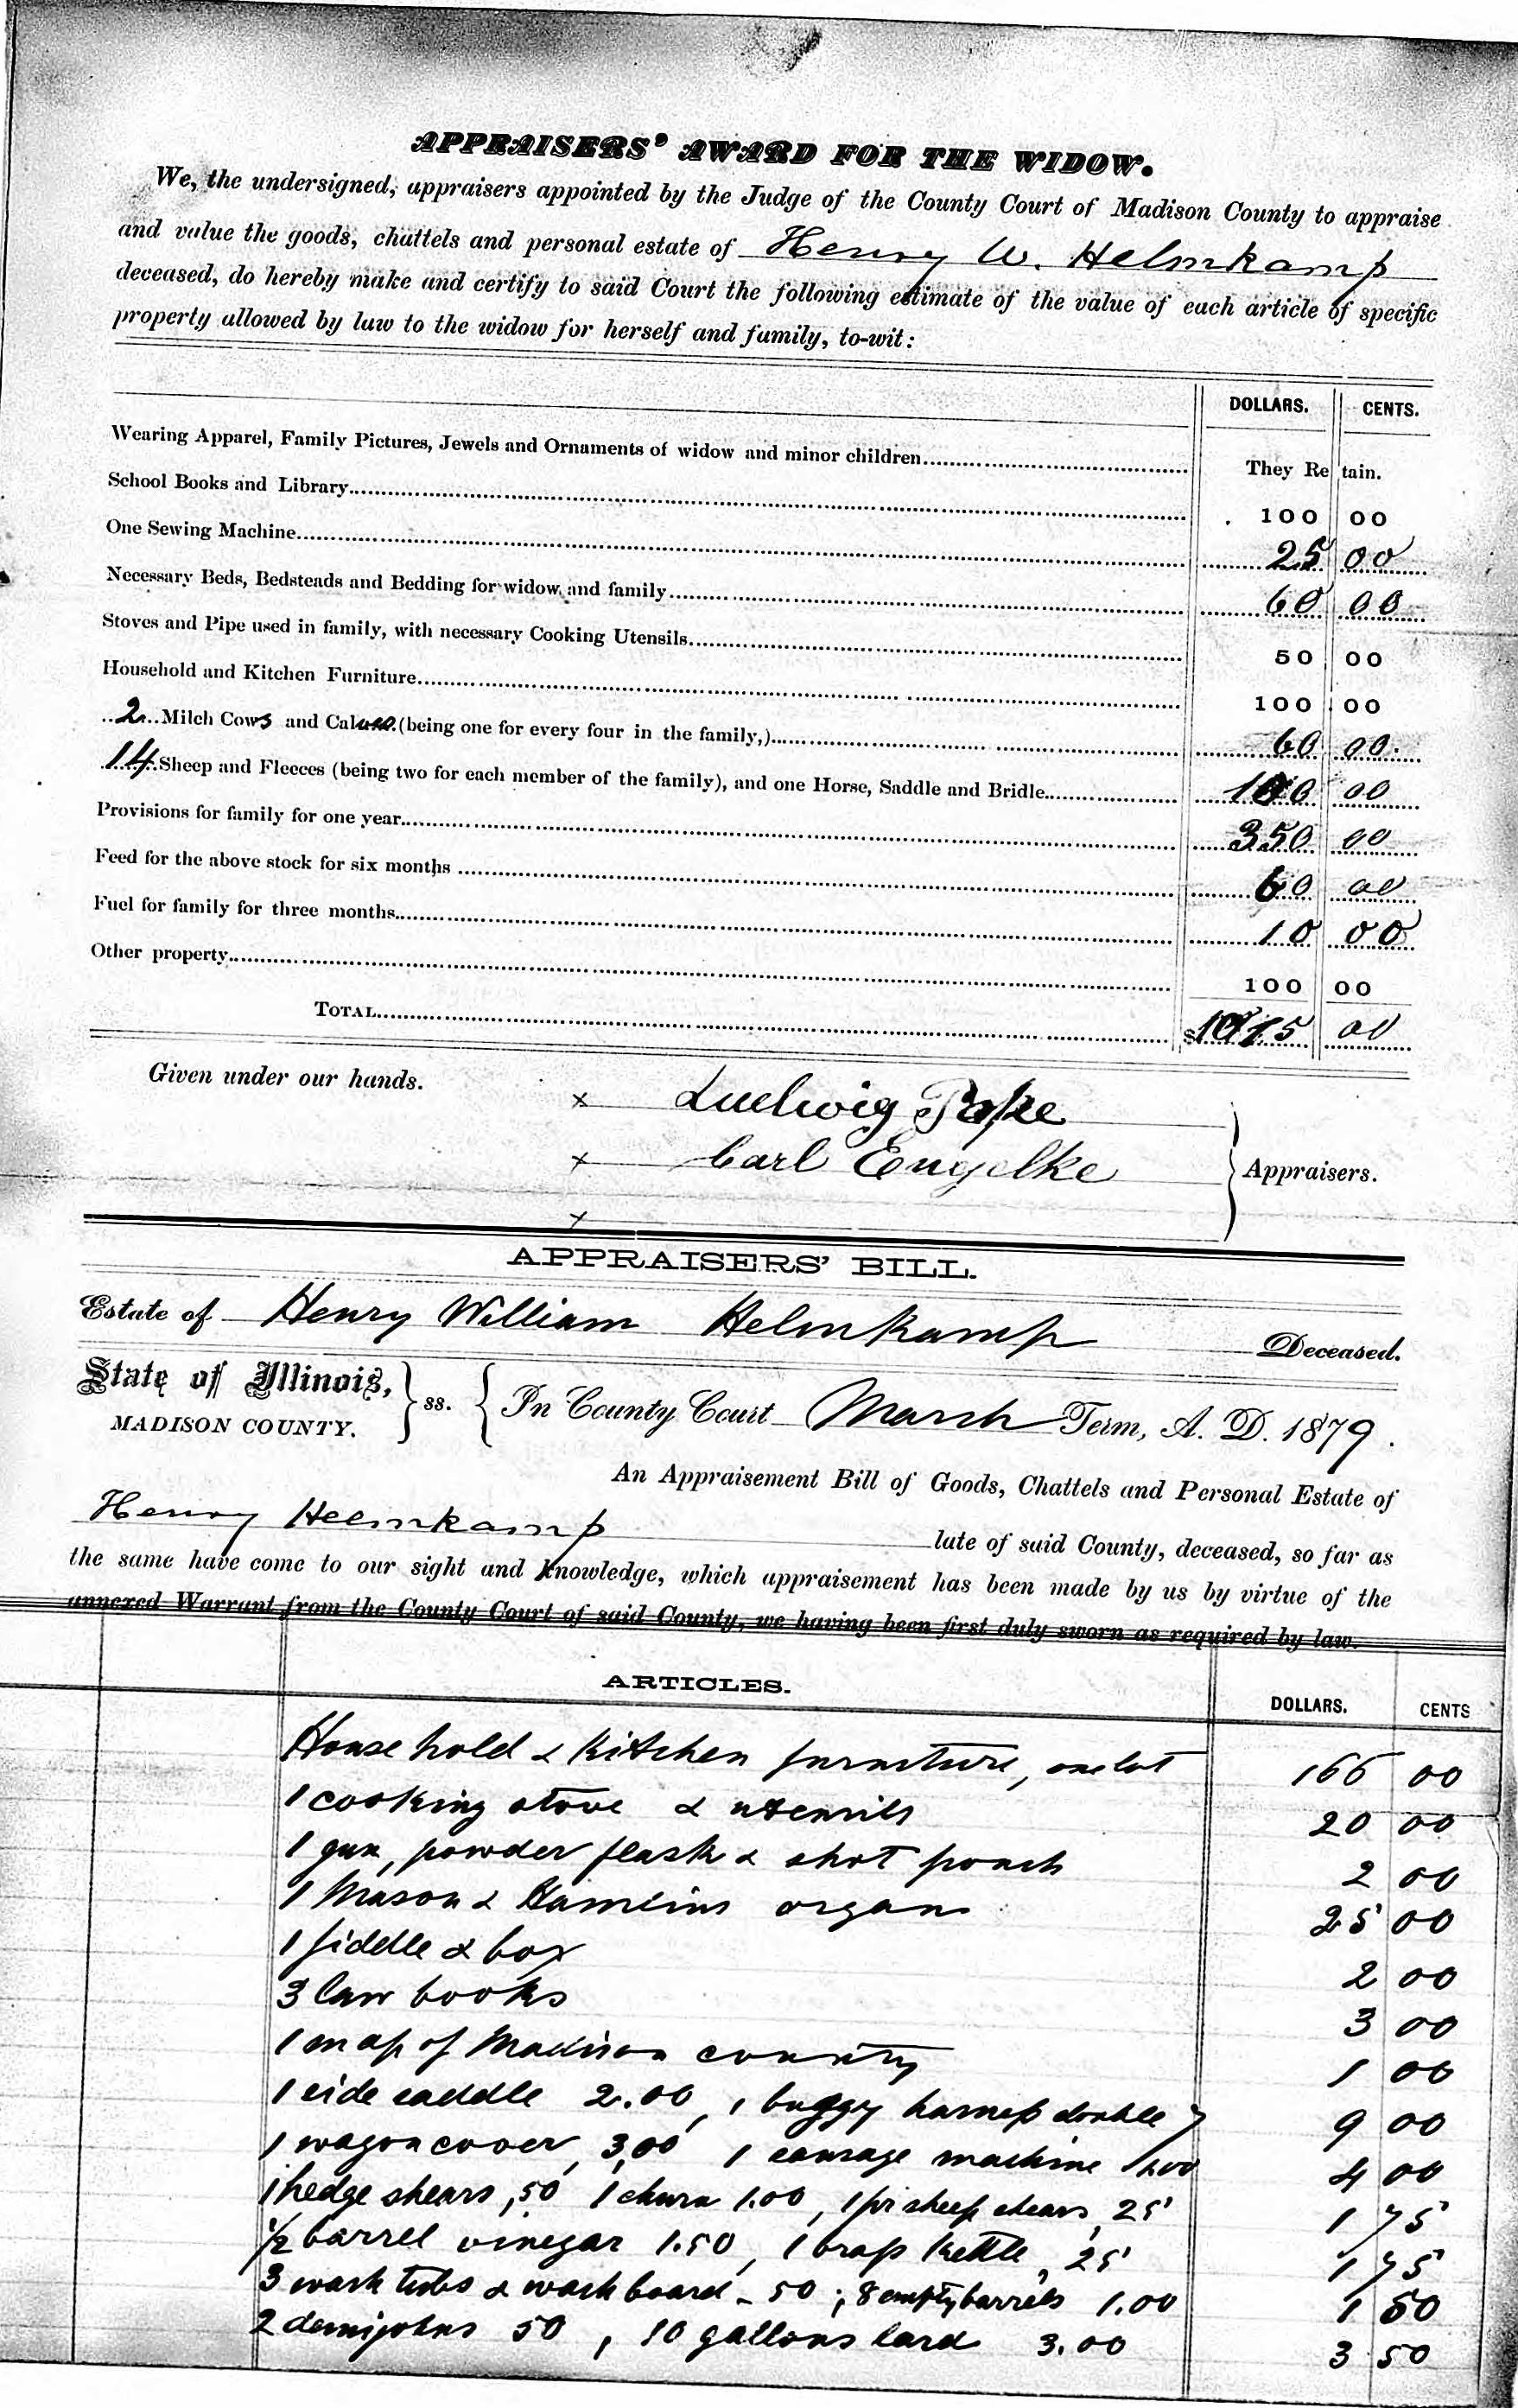 APPRAISERS' AWARD FOR THE WIDOW.
We, the undersigned, appraisers appointed by the Judge of the County Court of Madison County to appraise
and value the goods, chattels and personal estate of Henry W. Helmkamp
deceased, do hereby make and certify to said Court the following estimate of the value of each article of specific
property allowed by law to the widow for herself and family, to-wit:
DOLLARS. CENTS.
Wearing Apparel, Family Pictures, Jewels and Ornaments of widow and minor children They Retain.
School Books and Library 100 00
One Sewing Machine 25 00
Necessary Beds, Bedsteads and Bedding for widow and family 60 00
Stoves and Pipe used in family, with necessary Cooking Utensils 50 00
Household and Kitchen Furniture 100 00
2 Milch Cows and Calves (being one for every four in the family,) 60 00
14 Sheep and Fleeces (being two for each member of the family), and one Horse, Saddle and Bridle 100 00
Provisions for family for one year 350 00
Feed for the above stock for six months 60 00
Fuel for family for three months 10 00
Other property 100 00
TOTAL $1015 00
Given under our hands.
x Ludwig Pape
x Carl Engelke
Appraisers.
x
APPRAISERS' BILL.
Estate of Henry William Helmkamp Deceased.
State of Illinois, MADISON COUNTY. ss. In County Court March Term, A. D. 1879.
An Appraisement Bill of Goods, Chattels and Personal Estate of
Henry Helmkamp late of said County, deceased, so far as
the same have come to our sight and knowledge, which appraisement has been made by us by virtue of the
annexed Warrant from the County Court of said County, we having been first duly sworn as required by law.
ARTICLES. DOLLARS. CENTS
House hold & Kitchen furniture, one lot 166 00
1 cooking stove & utensils 20 00
1 gun, powder flask & shot pouch 2 00
1 Mason & Hamlins organ 25 00
1 fiddle & box 2 00
3 law books 3 00
1 map of Madison county 1 00
1 side saddle 2.00, 1 buggy harness double 7 9 00
1 wagon cover, 3,00 1 sausage machine 1.00 4 00
1 hedge shears, 50 1 churn 1.00, 1 pr sheep shears, 25 1 75
1/2 barrel vinegar 1.50, 1 brass kettle, 25 1 75
3 wash tubs & wash board - 50; 8 empty barrels 1.00 1 50
2 demijohns 50, 10 gallons lard 3.00 3 50